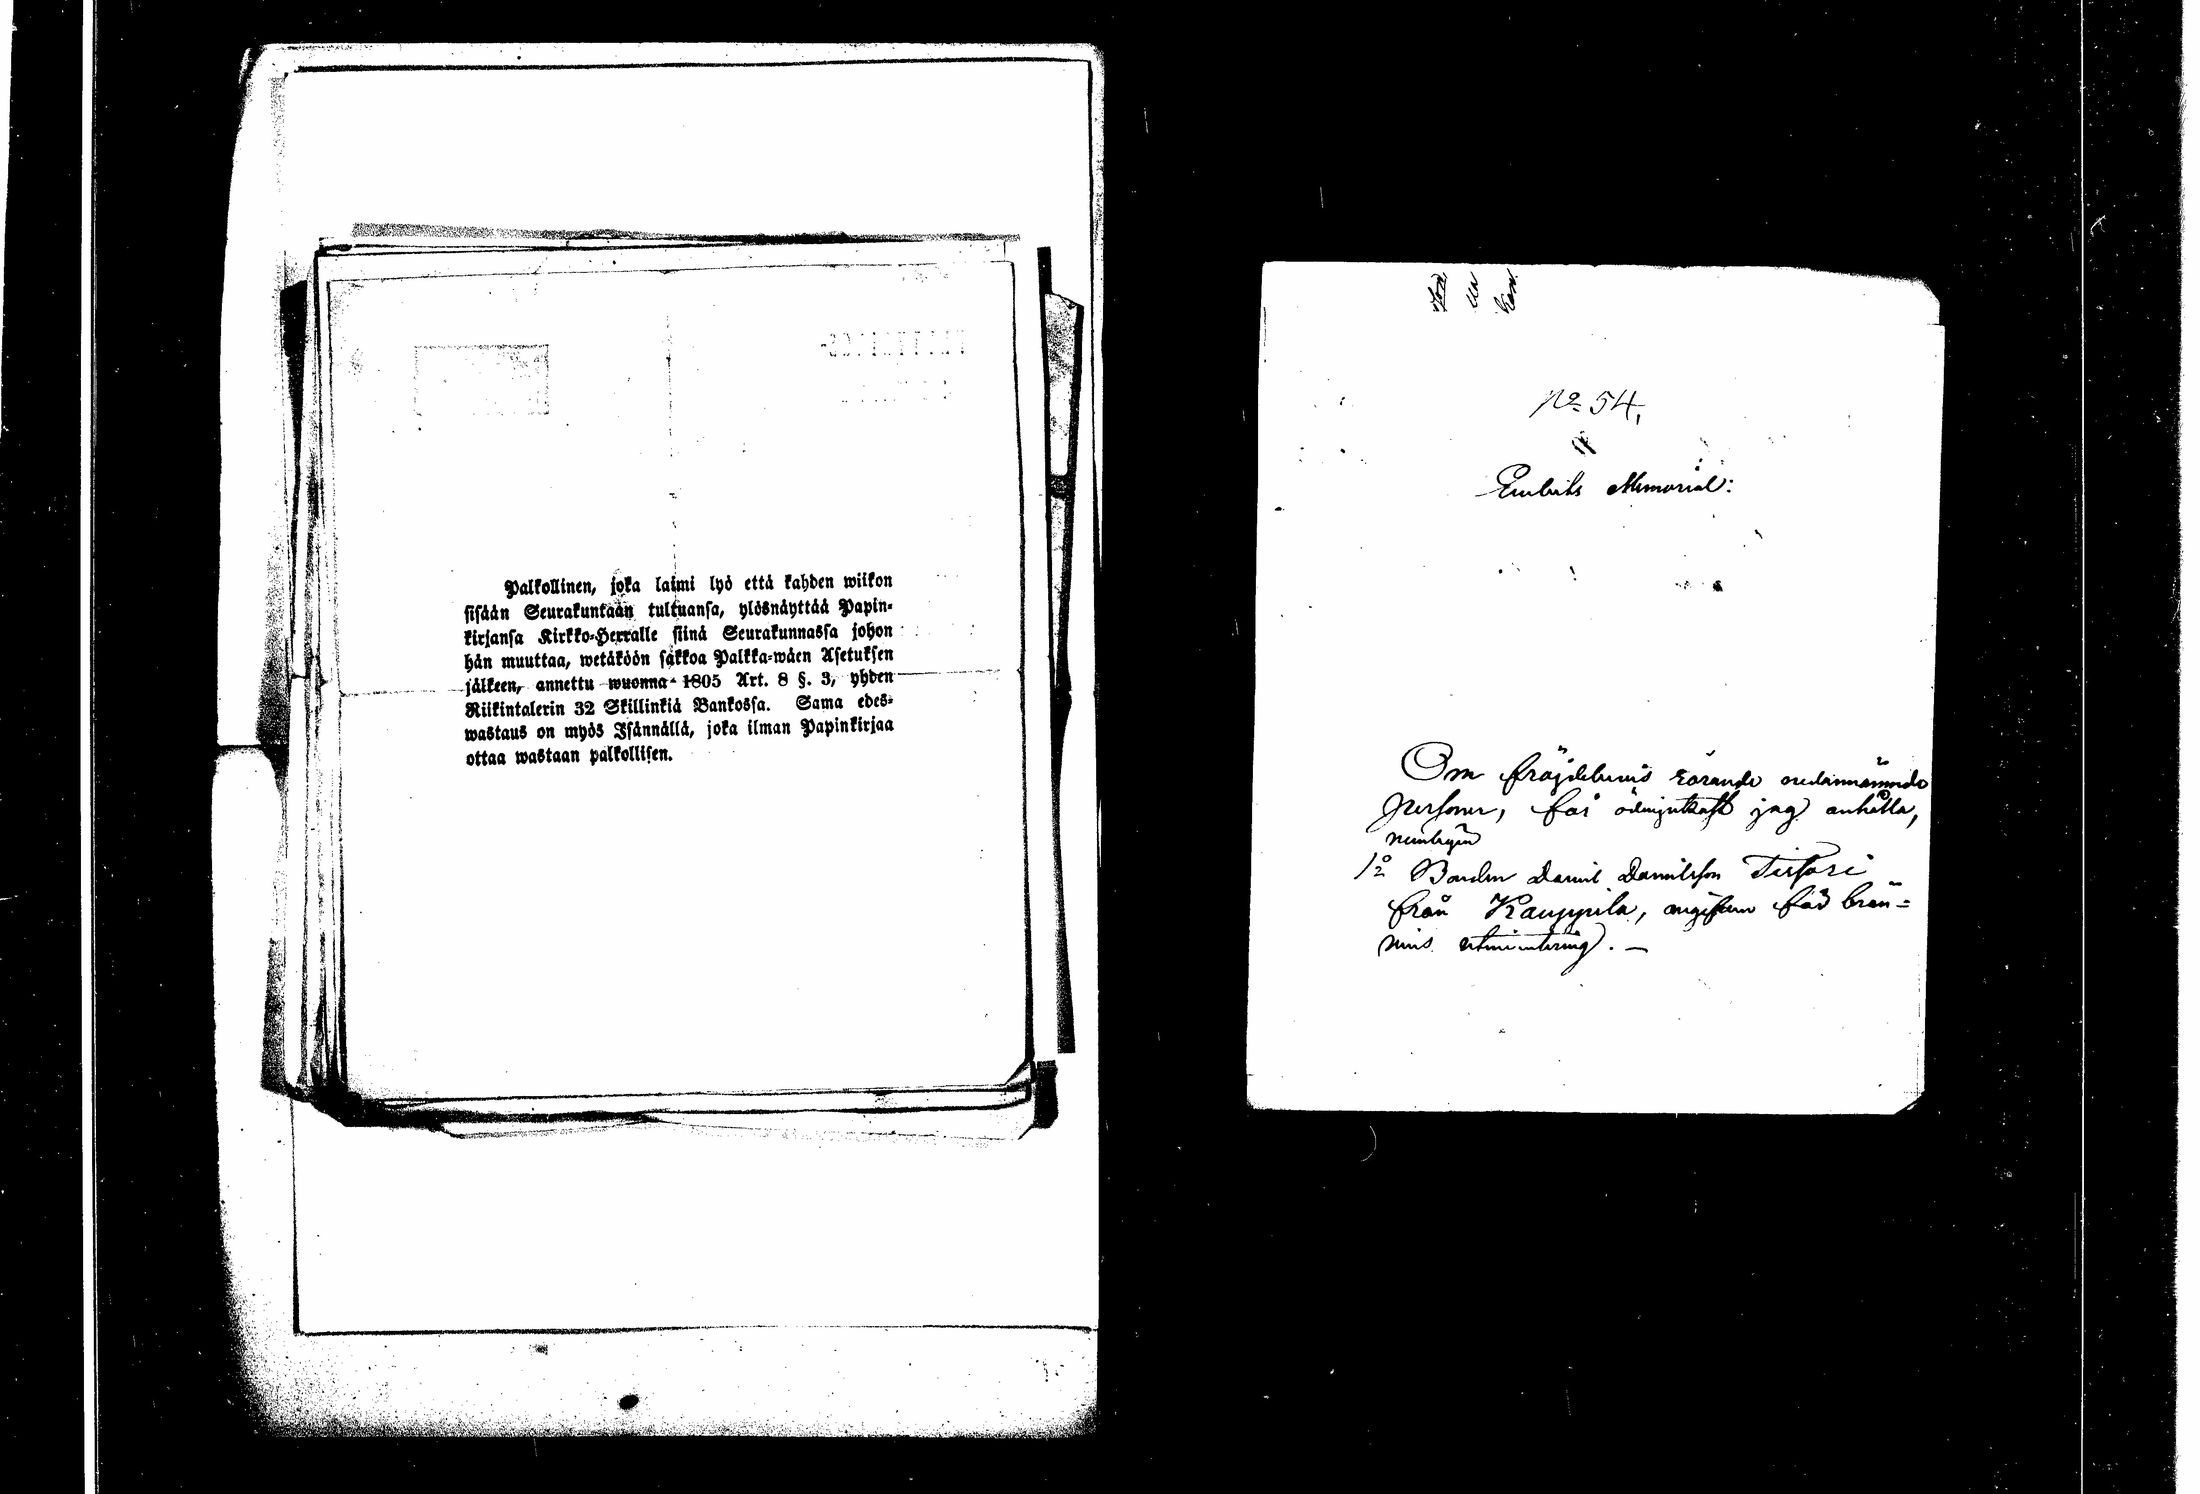 Palkollinen, joka laimi lyö että kahden wiikon
sisään Seurakuntaan tultuansa, ylösnäyttää Papin-
kirjansa Kirkko-Herralle siinä Seurakunnassa johon
hän muuttaa, wetäköön sakkoa Palkka-wäen Asetuksen
jälkeen, annettu wuonna 1805 Art. 8 §. 3, yhden
Riikintalerin 32 Skillinkiä Bankossa. Sama edes-
wastaus on myös Isännällä, joka ilman Papinkirjaa
ottaa wastaan palkollisen.
No 54.
Embets Memorial:
Om fräjdebevis rörande nedannämnde
personer, får ödmjukast jag anhålla,
nemligen
1o Bonden Daniel Danielsson
från Kauppila, angifven för brän=
vins utminutering. —